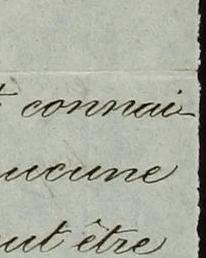 t connai-
aucune
eut être